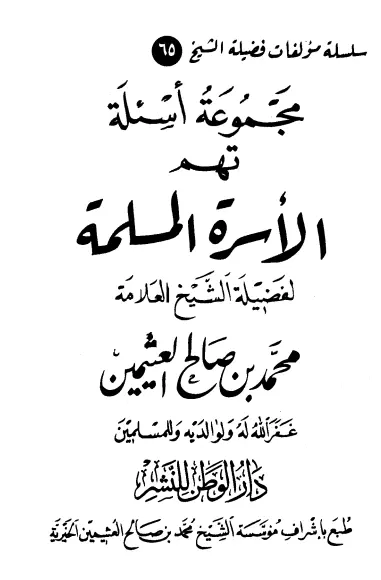 سلسلة مؤلفات فضيلة الشيخ ٦٥
مجَـمُوعَةُ أسْـئِلَة
تهـم
الأسرة المسلمة
لفضيّلة الشَّيخ العلامة
محمَّد بن صَالح العثيمين
غفَرَ اللهُ لَهُ ولوالديْه وللمسْلميْن
دَارُ الوَطَن للنَشْرِ
طُبعَ بإشراف مُؤسّسَة الشَّيخ محمَّد بن صَالح العثيمين الخيْرية